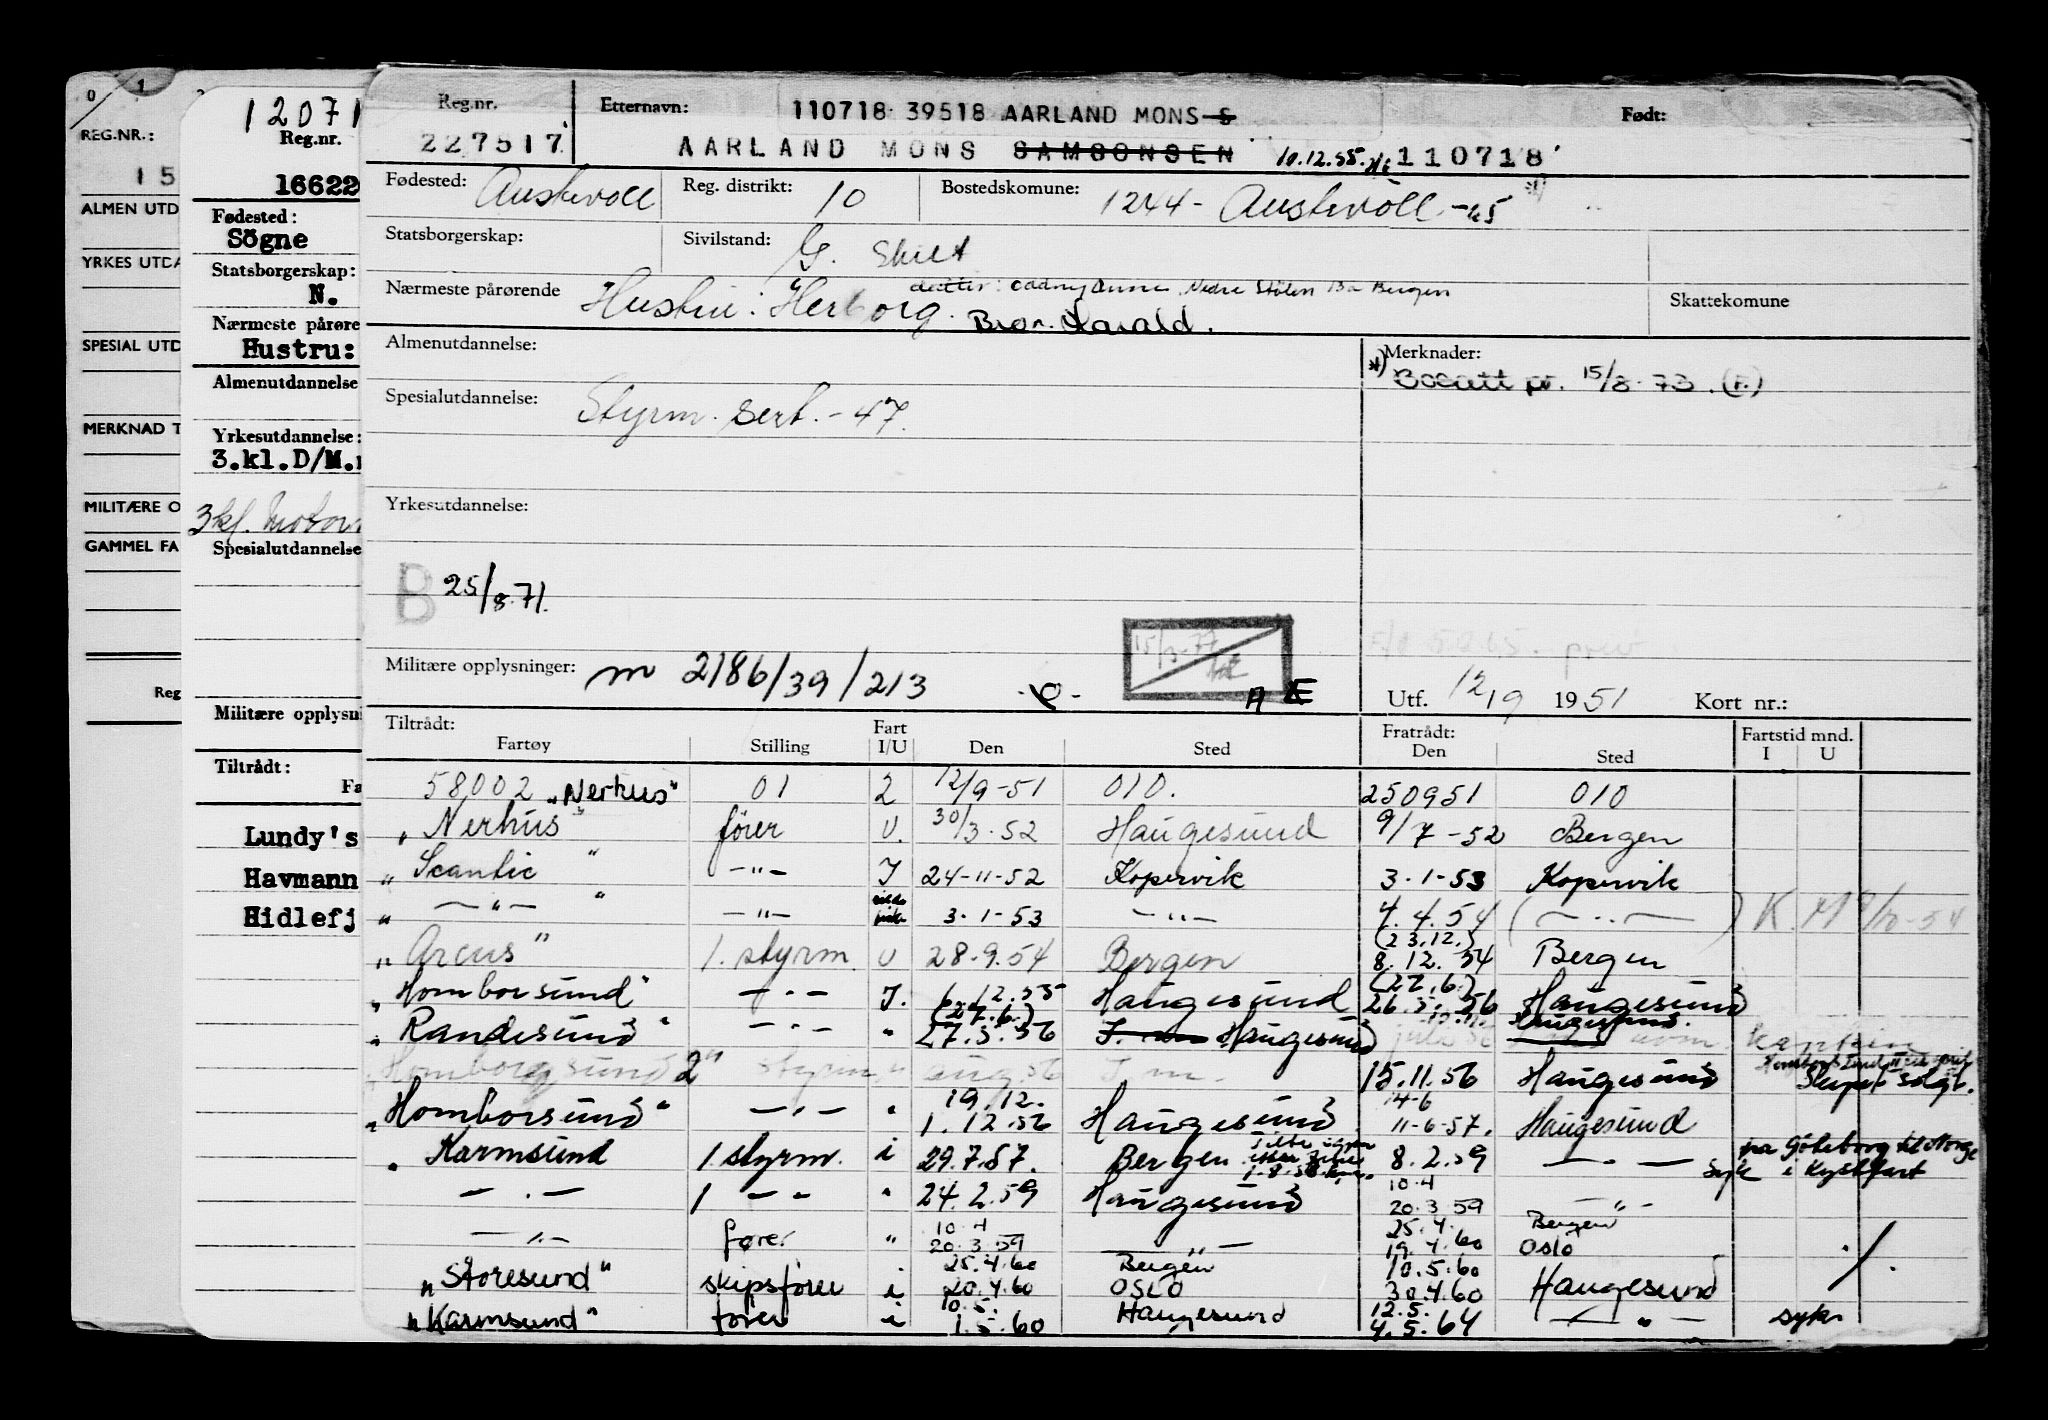 0 1
REG.NR.:
15
ALMEN UTD
YRKES UTDA
SPESIAL UTD
MERKNAD T
MILITÆRE O
GAMMEL FA
Reg
12071
Reg.nr.
16622
Fødested:
Sögne
Statsborgerskap:
N.
Nærmeste pårøre
Hustru:
Almenutdannelse
Yrkesutdannelse:
3.kl.D/M.
3 kl. Motor
Spesialutdannelse
Militære opplysni
Tiltrådt:
Fa
Lundy's
Havmann
Hidlefj
Reg.nr. Etternavn: 110718 39518 AARLAND MONS S Født:
227517 AARLAND MONS SAMSONSEN 10.12.55 110718
Fødested: Austevoll Reg. distrikt: 10 Bostedskomune: 1244 - Austevoll -45 *)
Statsborgerskap: Sivilstand: G. Skilt
Nærmeste pårørende Hustru: Herborg. datter: Oddny Anne, Nedre Stølen Bergen Skattekomune
Bror: Harald.
Almenutdannelse: *) Merknader:
Bosatt pr. 15/8-73. (F.)
Spesialutdannelse: Styrm. sert. -47.
Yrkesutdannelse:
B 25/8.71.
15/3-77
Militære opplysninger: m 2186/39/213 A E Utf. 12/9 1951 Kort nr.:
Tiltrådt: Fart Fratrådt: Fartstid mnd.
Fartøy Stilling I/U Den Sted Den Sted I U
58002 "Nerhus" 01 2 12/9-51 010. 250951 010
"Nerhus" fører U. 30/3-52 Haugesund 9/7-52 Bergen
"Scantic" -"- I 24-11-52 Kopervik 3-1-53 Kopervik
" -"- " -"- 3-1-53 -"- 4.4.54 (-"-) K.
"Arcus" 1. styrm. U 28.9.54 Bergen (23.12.) 8.12.54 Bergen
"Homborsund" -"- I. 6.12.55 Haugesund (27.6.) 26.5.56 Haugesund
"Randesund" -"- " (27.6.) 27.5.56 Haugesund Haugesund.
Homborgsund 2" styrm. " aug. 56 15.11.56 Haugesund Skipet solgt.
"Homborsund" -"- " 19.12. 1.12.56 Haugesund 14-6 11-6-57. Haugesund
"Karmsund 1 styrm. i 29.7.57. Bergen 8.2.59 -"- fra Göteborg til Norge
syk i kystfart
-"- 1 -"- " 24.2.59 Haugesund 10.4 20.3.59 -"-
-"- fører " 10.4 20.3.59 -"- 25.4. 19.4.60 Bergen Oslo
"Storesund" skipsfører i 25.4.60 20.4.60 Bergen OSLO 10.5.60 30.4.60 Haugesund
"Karmsund" fører i 10.5. 1.5.60 Haugesund 12.5. 4.5.64 -"- syk.